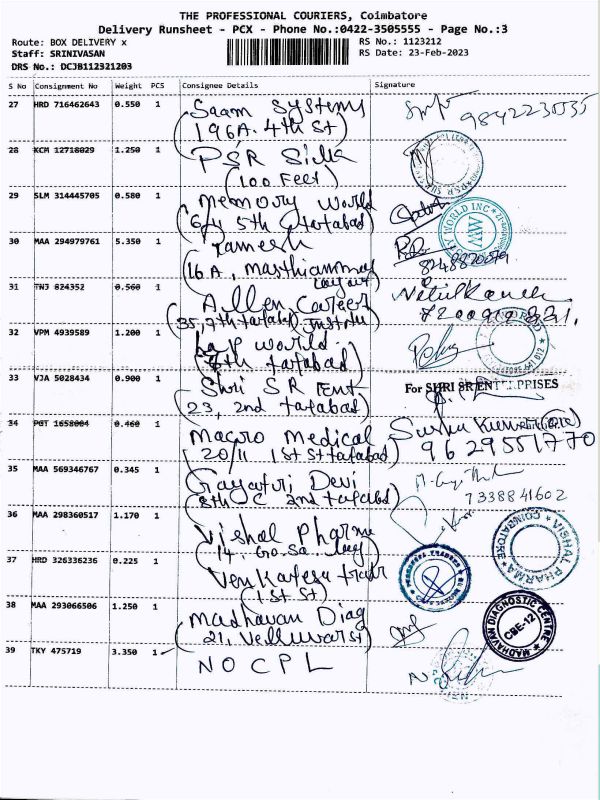 THE PROFESSIONAL COURIERS, Coimbatore
Delivery Runsheet - PCX - Phone No.:0422-3505555 - Page No.:3
Route: BOX DELIVERY x
RS No.: 1123212
Staff: SRINIVASAN
RS Date: 23-Feb-2023
DRS No.: DCJB112321203
S No Consignment No Weight PCS Consignee Details Signature
27 HRD 716462643 0.550 1 Saam Systems
(196A. 4th St) 9842230535
28 KCM 12718029 1.250 1 PSR Silk
(100 Feet)
29 SLM 314445705 0.580 1 Memory World
5th tatabad)
30 MAA 294979761 5.350 1 Rameesh
(16 A, Masthiammal Layout) 8248820079
31 TNJ 824352 0.560 1 Allen Career
35, 9th tatabad)
32 VPM 4939589 1.200 1 World
tatabad)
33 VJA 5028434 0.900 1 Shri SR Ent
For SHRI SR ENTERPRISES
23, 2nd tatabad)
34 PGT 1658004 0.460 1 Macro Medical
(20/11 1st St tatabad) 9629551770
35 MAA 569346767 0.345 1 Gayatri Devi
(8th C 2nd tatabad) 7338841602
36 MAA 298360517 1.170 1 Vishal Pharma
VISHAL PHARMA
COIMBATORE
(14.
37 HRD 326336236 0.225 1 Venkatesa
(1st St)
38 MAA 293066506 1.250 1 Madhavan Diag
(21, Velluvar St)
MADHAVAN DIAGNOSTIC CENTRE
CBE-12
39 TKY 475719 3.350 1 NOCPL